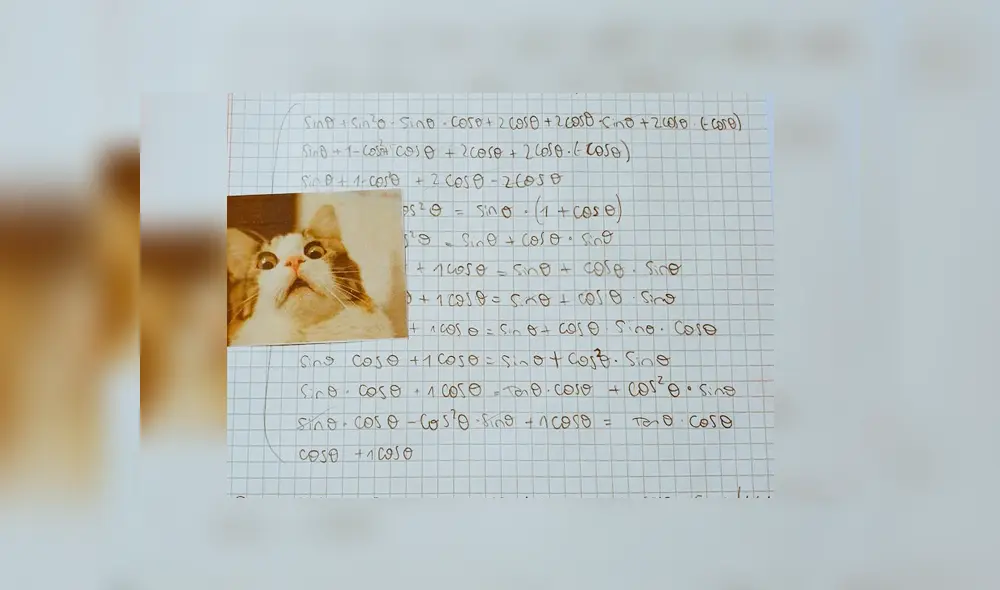 sinθ + sin²θ - sinθ · cosθ + 2cosθ + 2cosθ · sinθ + 2cosθ · (-cosθ)
sinθ + 1 - cosθ + 2cosθ + 2cosθ · (-cosθ)
sinθ + 1 - cosθ + 2cosθ - 2cosθ
os²θ = sinθ · (1 + cosθ)
s²θ = sinθ + cosθ · sinθ
+ 1cosθ = sinθ + cosθ · sinθ
θ + 1cosθ = sinθ + cosθ · sinθ
+ 1cosθ = sinθ + cosθ · sinθ · cosθ
sinθ cosθ + 1cosθ = sinθ + cos²θ · sinθ
sinθ · cosθ + 1cosθ = Tanθ · cosθ + cos²θ · sinθ
sinθ · cosθ - cos²θ · sinθ + 1cosθ = Tanθ · cosθ
cosθ + 1cosθ